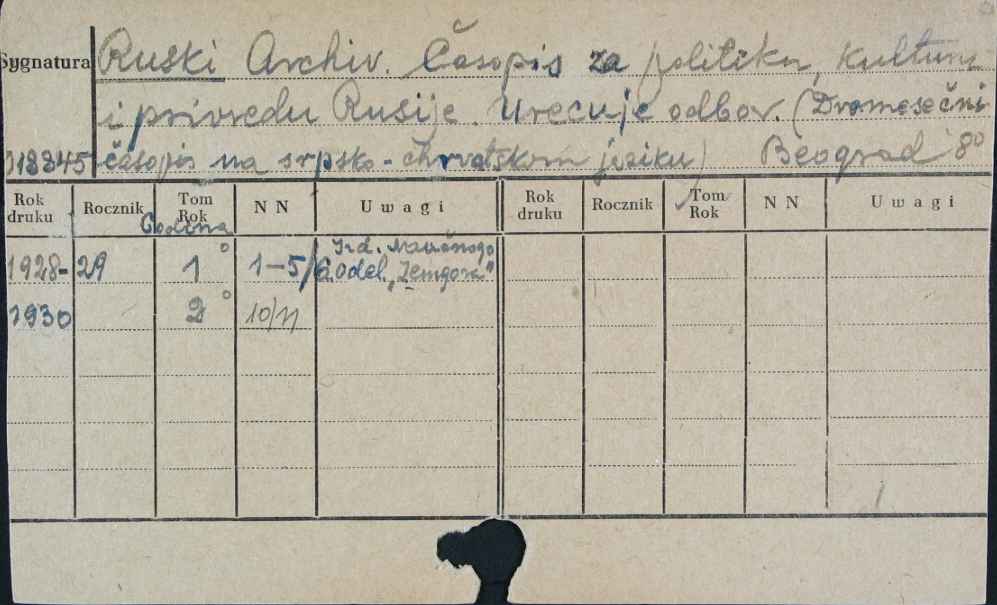 Sygnatura Ruski Archiv. Časopis za politiku, kulturu
i privredu Rusije. Uređuje odbor. (Dvomesečni
časopis na srpsko-chrvatskom jeziku) Beograd 8°
Rok druku Rocznik Tom Rok N N Uwagi Rok druku Rocznik Tom Rok N N Uwagi
Godina
Izd. Naučnogo
1928-29 1° 1-5/6 odel. „Zemgora"
1930 2° 10/11